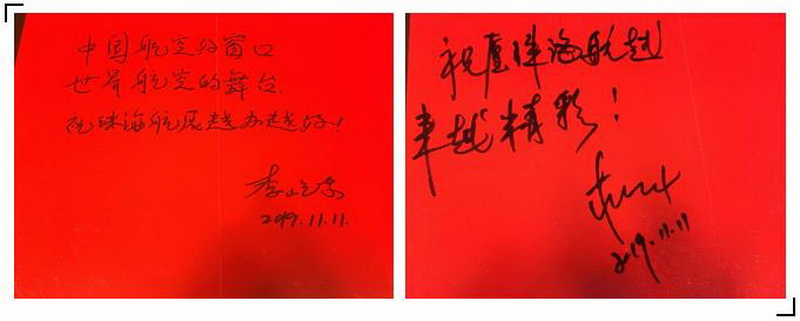 中国航空的窗口
世界航空的舞台
祝珠海航展越办越好!
李屹东
2019.11.11.
祝愿珠海航
卓越精彩!
2019.11.11